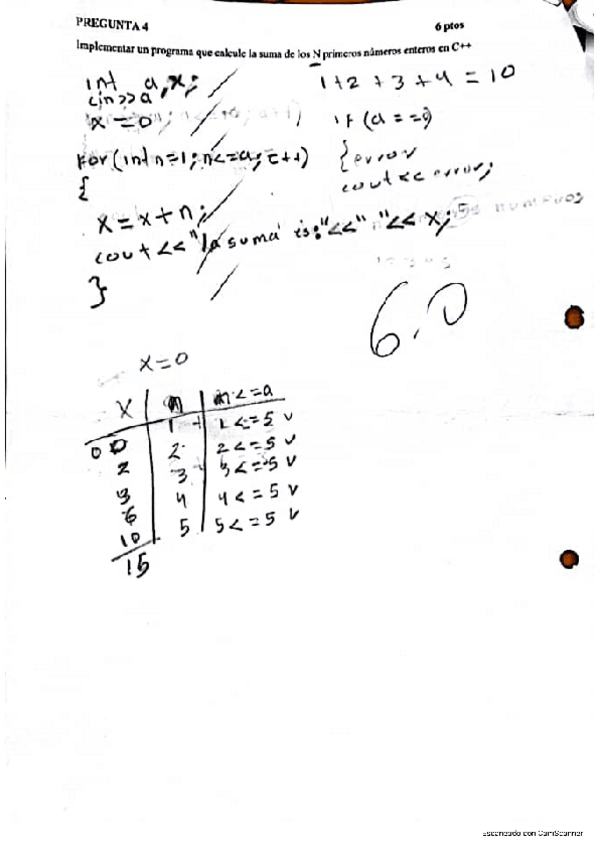 PREGUNTA 4 6 ptos
Implementar un programa que calcule la suma de los N primeros números enteros en C++
int a,x;
cin>>a
x=0;
1+2+3+4=10
if (a==0)
{error
cout<<error;
for(int n=1;n<=a;c++)
{
x=x+n;
cout<<"la suma is:"<<" "<<x;
}
6.0
x=0
x n n<=a
1 1<=5 v
0 0 2 2<=5 v
2 3 3<=5 v
3 4 4<=5 v
6 5 5<=5 v
10
15
Escaneado con CamScanner